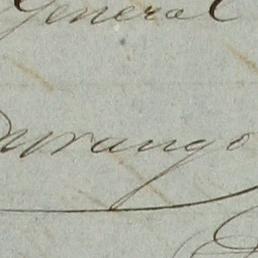 General
Durango